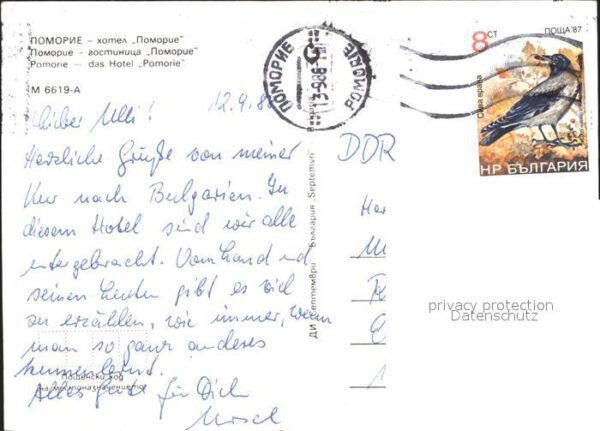 ПОМОРИЕ – хотел „Поморие“
Поморие – гостиница „Поморие“
Pomorie — das Hotel „Pomorie“
М 6619-А
Lieber Ulli! 12.9.88
Herzliche Grüße von meiner
Kur nach Bulgarien. In
diesem Hotel sind wir alle
untergebracht. Vom Land und
seinen Leuten gibt es viel
zu erzählen, wie immer, wenn
man so ganz anderes
kennenlernt.
Alles Gute für Dich
Ursel
Пощенски код
на местоназначението
ДИ „Септември“ България „Septemvri“
ПОМОРИЕ
POMORIE
8 СТ
ПОЩА '87
Сива врана
НР БЪЛГАРИЯ
DDR
privacy protection
Datenschutz